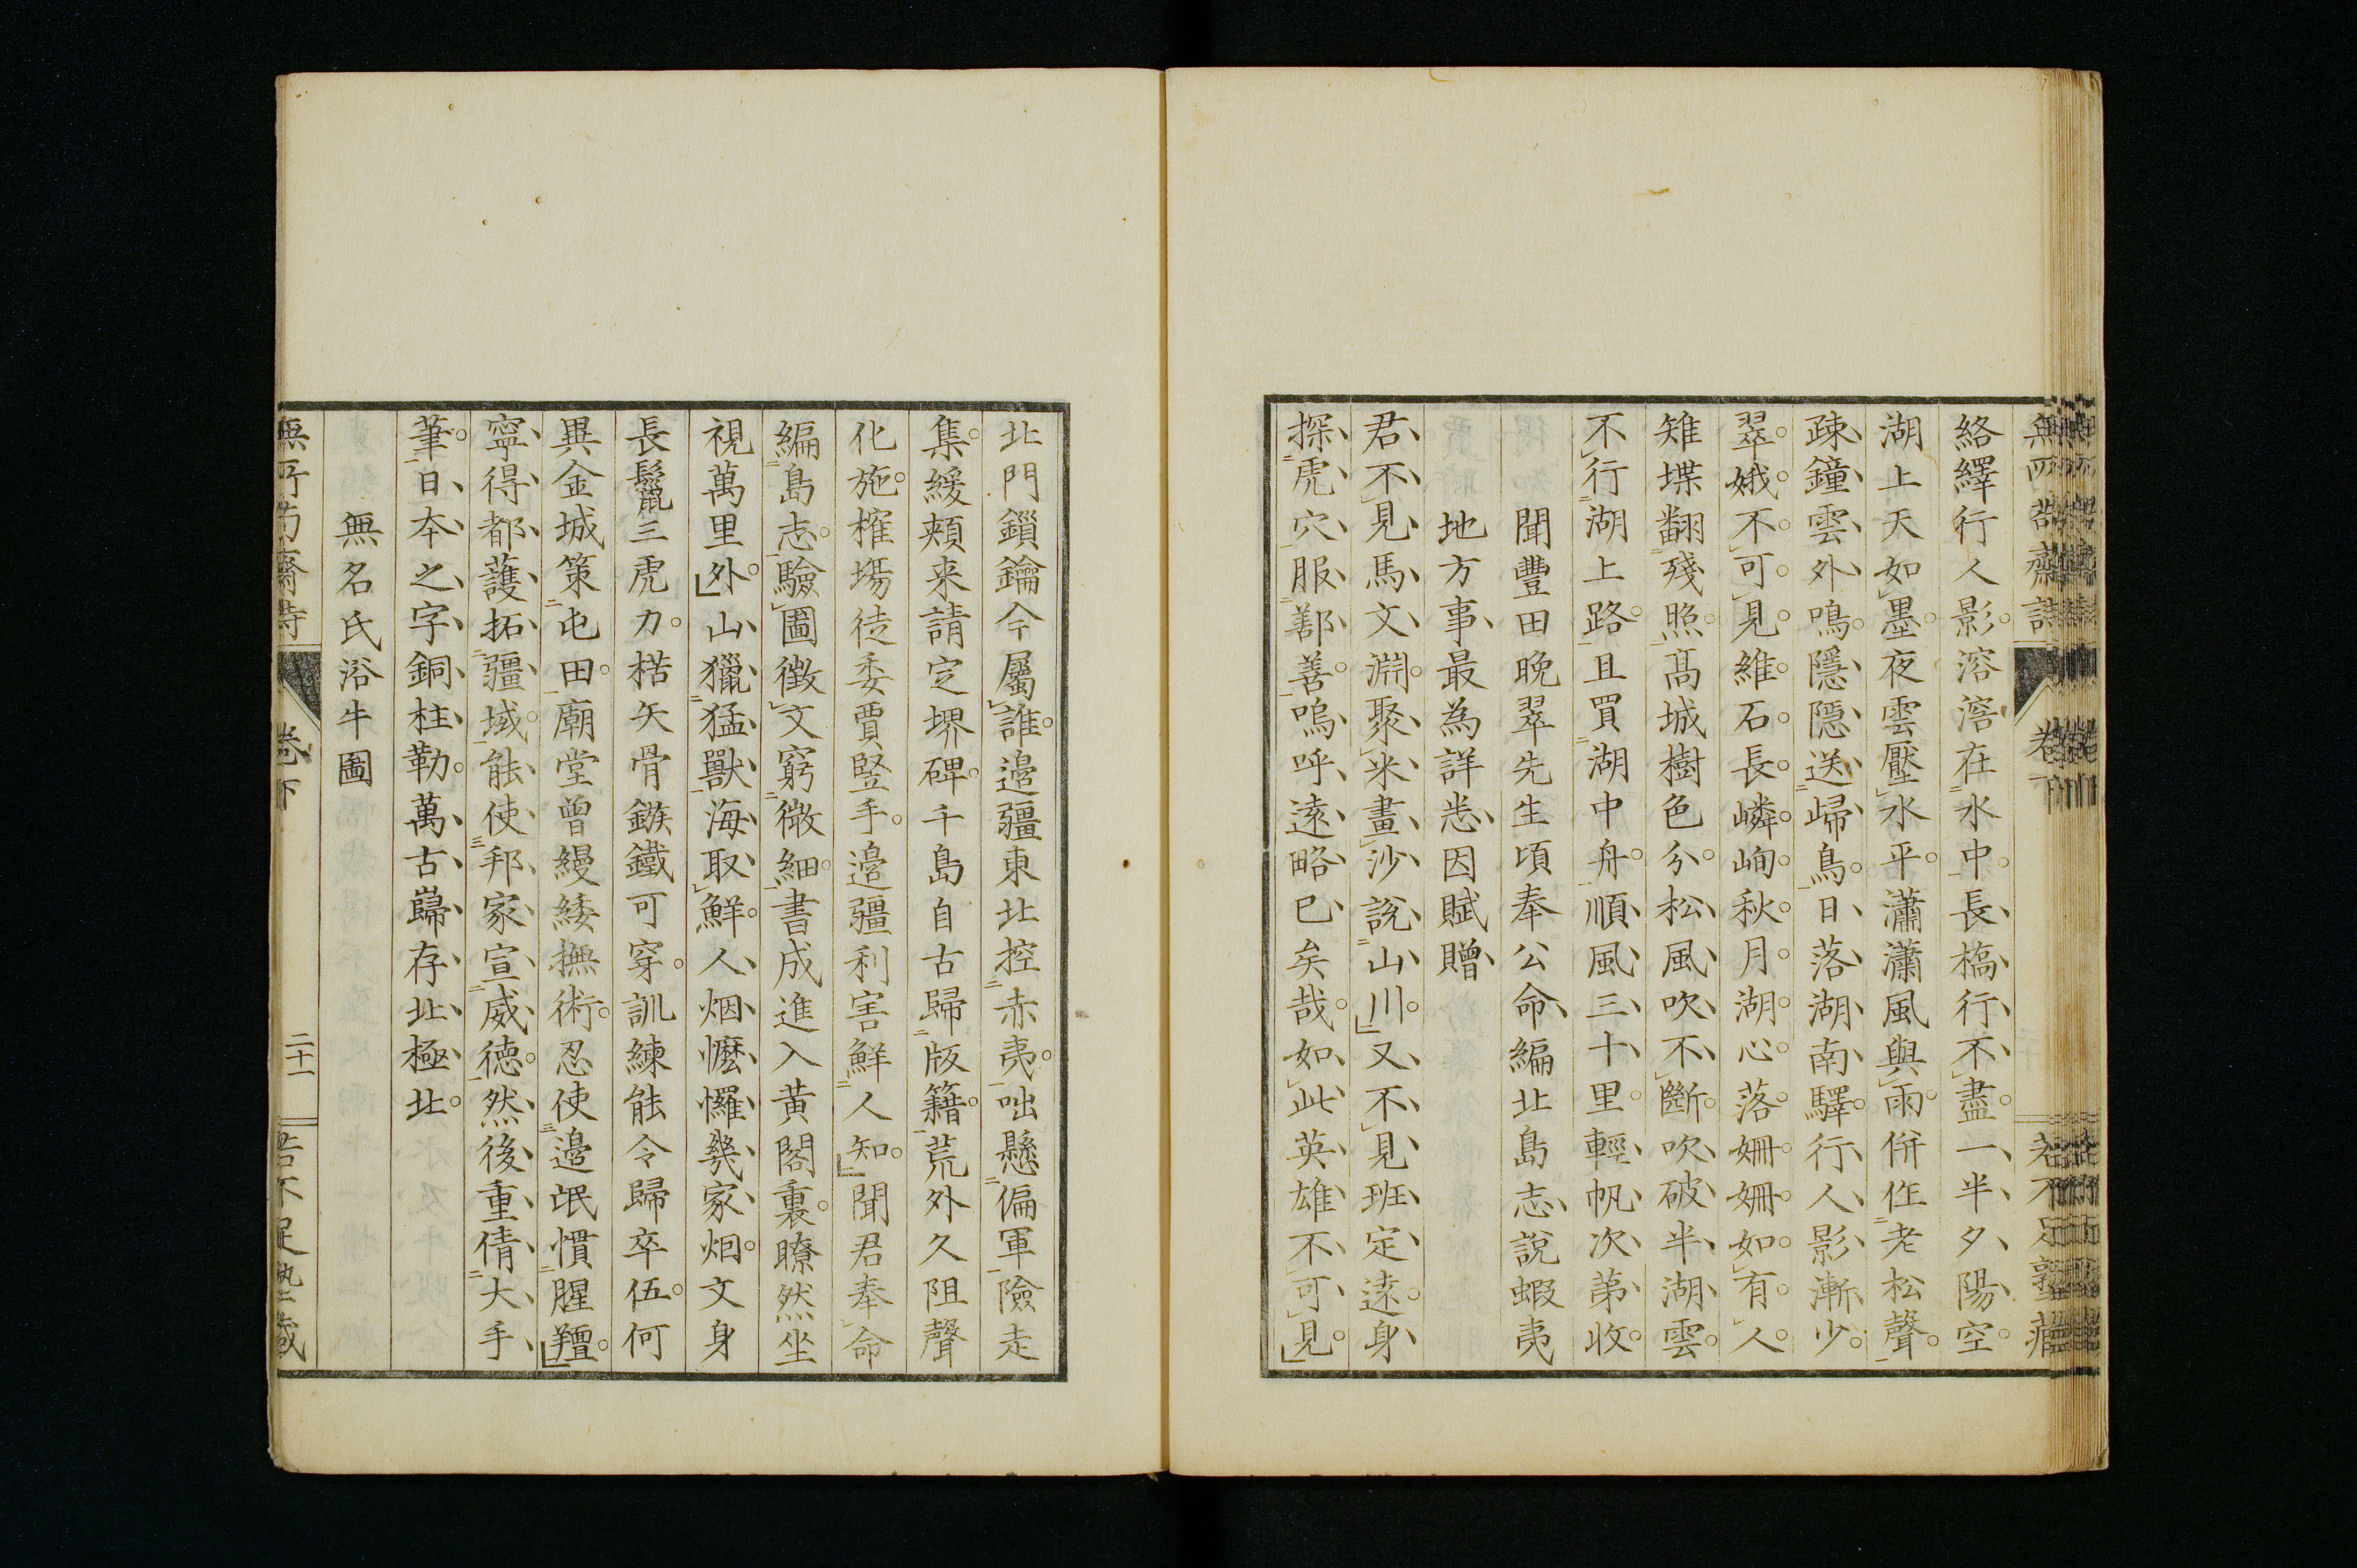 絡繹行人影溶溶在水中長橋行不盡一半夕陽空
湖上天如墨夜雲壓水平瀟瀟風與雨併作老松聲
疎鐘雲外鳴隱隱送歸鳥日落湖南驛行人影漸少
翠娥不可見維石長嶙峋秋月湖心落姍姍如有人
雉堞翻殘照高城樹色分松風吹不斷吹破半湖雲
不行湖上路且買湖中舟順風三十里輕帆次第收
聞豐田晩翠先生頃奉公命編北島志說蝦夷
地方事最為詳悉因賦贈
君不見馬文淵聚米畫沙說山川又不見班定遠身
探虎穴服鄯善嗚呼遠略已矣哉如此英雄不可見
北門鎻鑰今屬誰邊疆東北控赤夷咄懸偏軍險走
集緩頰来請定堺碑千島自古歸版籍荒外久阻聲
化施榷塲徒委賈豎手邊疆利害鮮人知聞君奉命
編島志驗圖徴文窮微細書成進入黄閣裏瞭然坐
視萬里外山獵猛獸海取鮮人烟㦄㦬幾家烟文身
長鬣三虎力楛矢骨鏃鐵可穿訓練能令歸卒伍何
異金城策屯田廟堂曾緩綏撫術忍使邊氓慣腥羶
寧得都護拓疆域能使邦家宣威徳然後重倩大手
筆日本之字銅柱勒萬古巋存北極北
無名氏浴牛圖
卷下
二十一